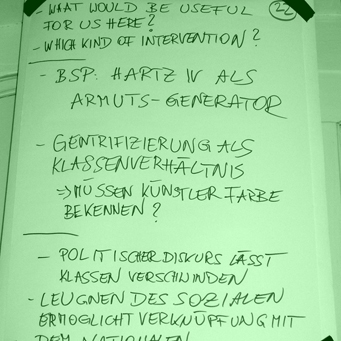 - WHAT WOULD BE USEFUL
FOR US HERE?
22
- WHICH KIND OF INTERVENTION?
- BSP: HARTZ IV ALS
ARMUTS-GENERATOR
- GENTRIFIZIERUNG ALS
KLASSENVERHÄLTNIS
=> MÜSSEN KÜNSTLER FARBE
BEKENNEN?
- POLITISCHER DISKURS LÄSST
KLASSEN VERSCHWINDEN
- LEUGNEN DES SOZIALEN
ERMÖGLICHT VERKNÜPFUNG MIT
DEM NATIONALEN